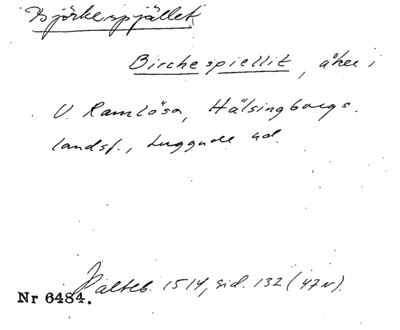 Björkespjället
Birchespiellit, åker i
V. Ramlösa, Hälsingborgs
landsf., Luggude hd.
Palteb. 1514, sid. 132 (47v).
Nr 6484.